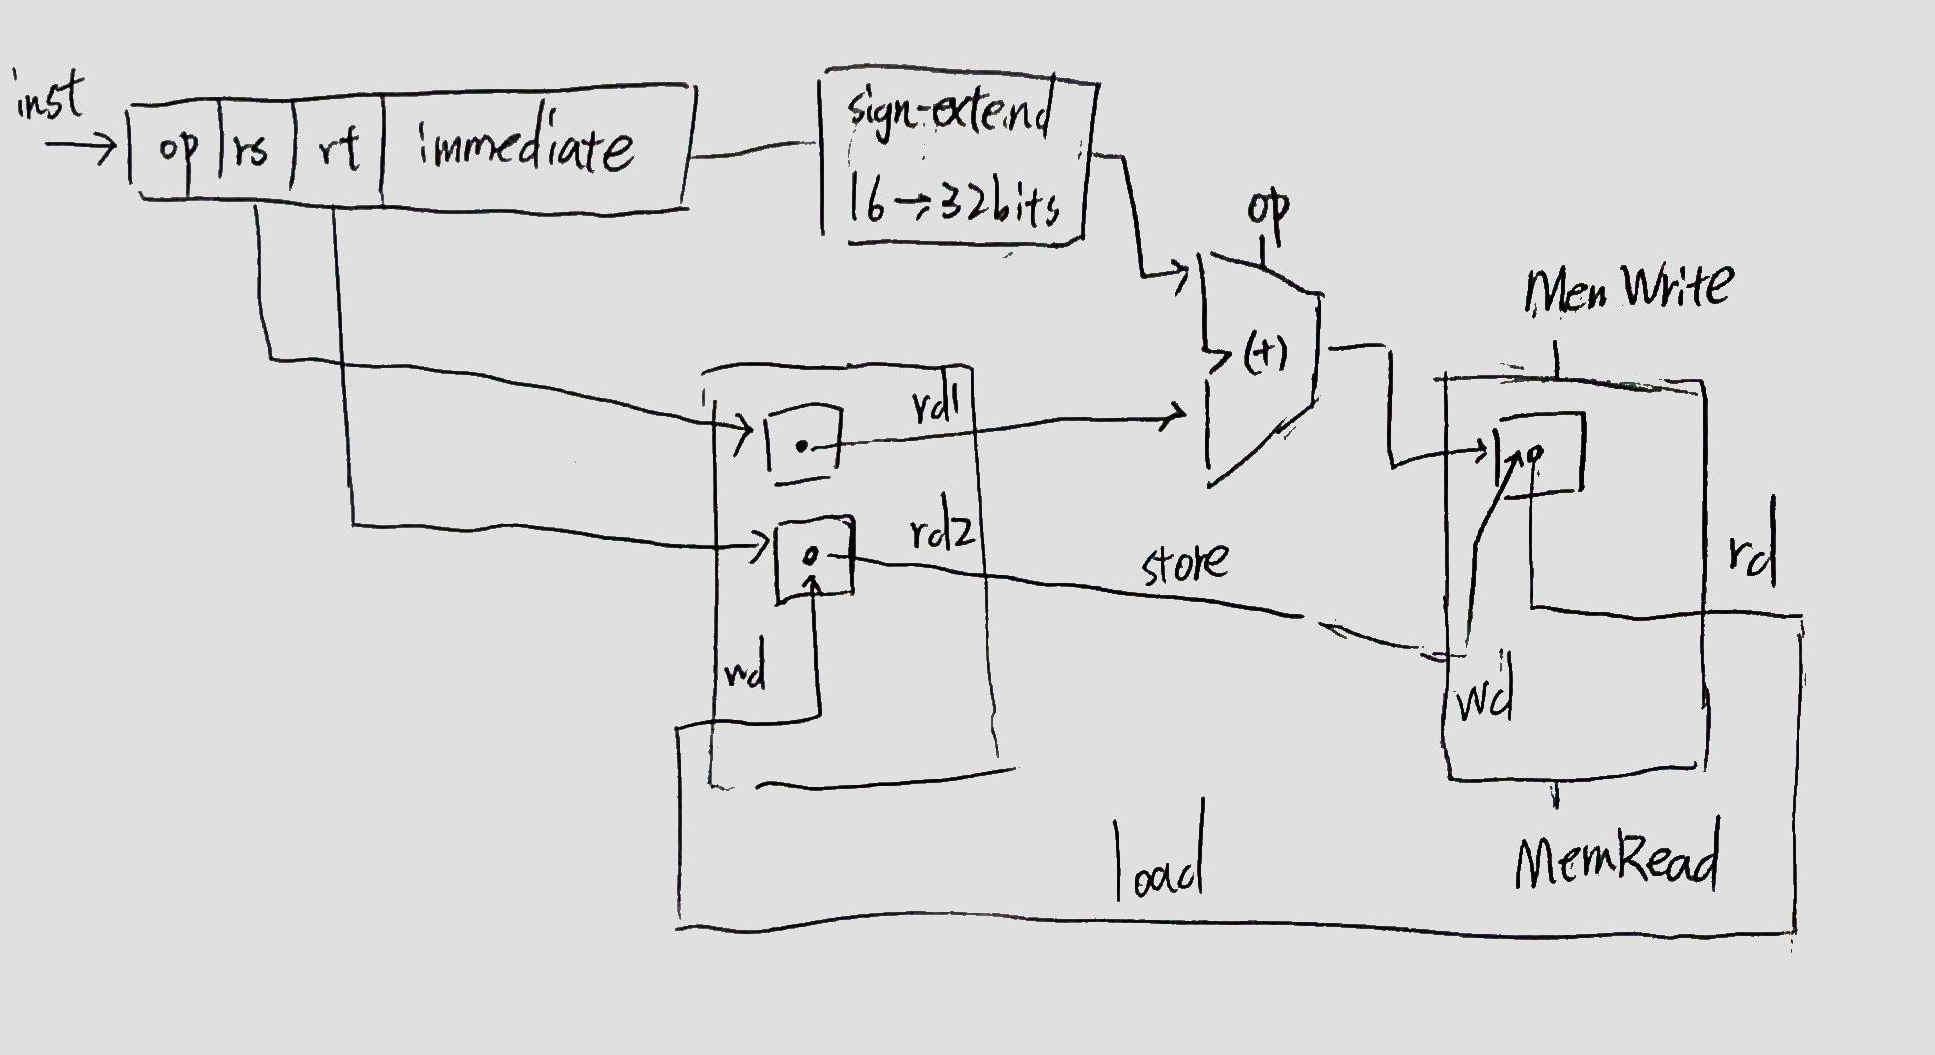 inst
op rs rt immediate
sign-extend
16→32bits
op
(+)
Men Write
rd1
rd2
store
rd
wd
wd
load
MemRead